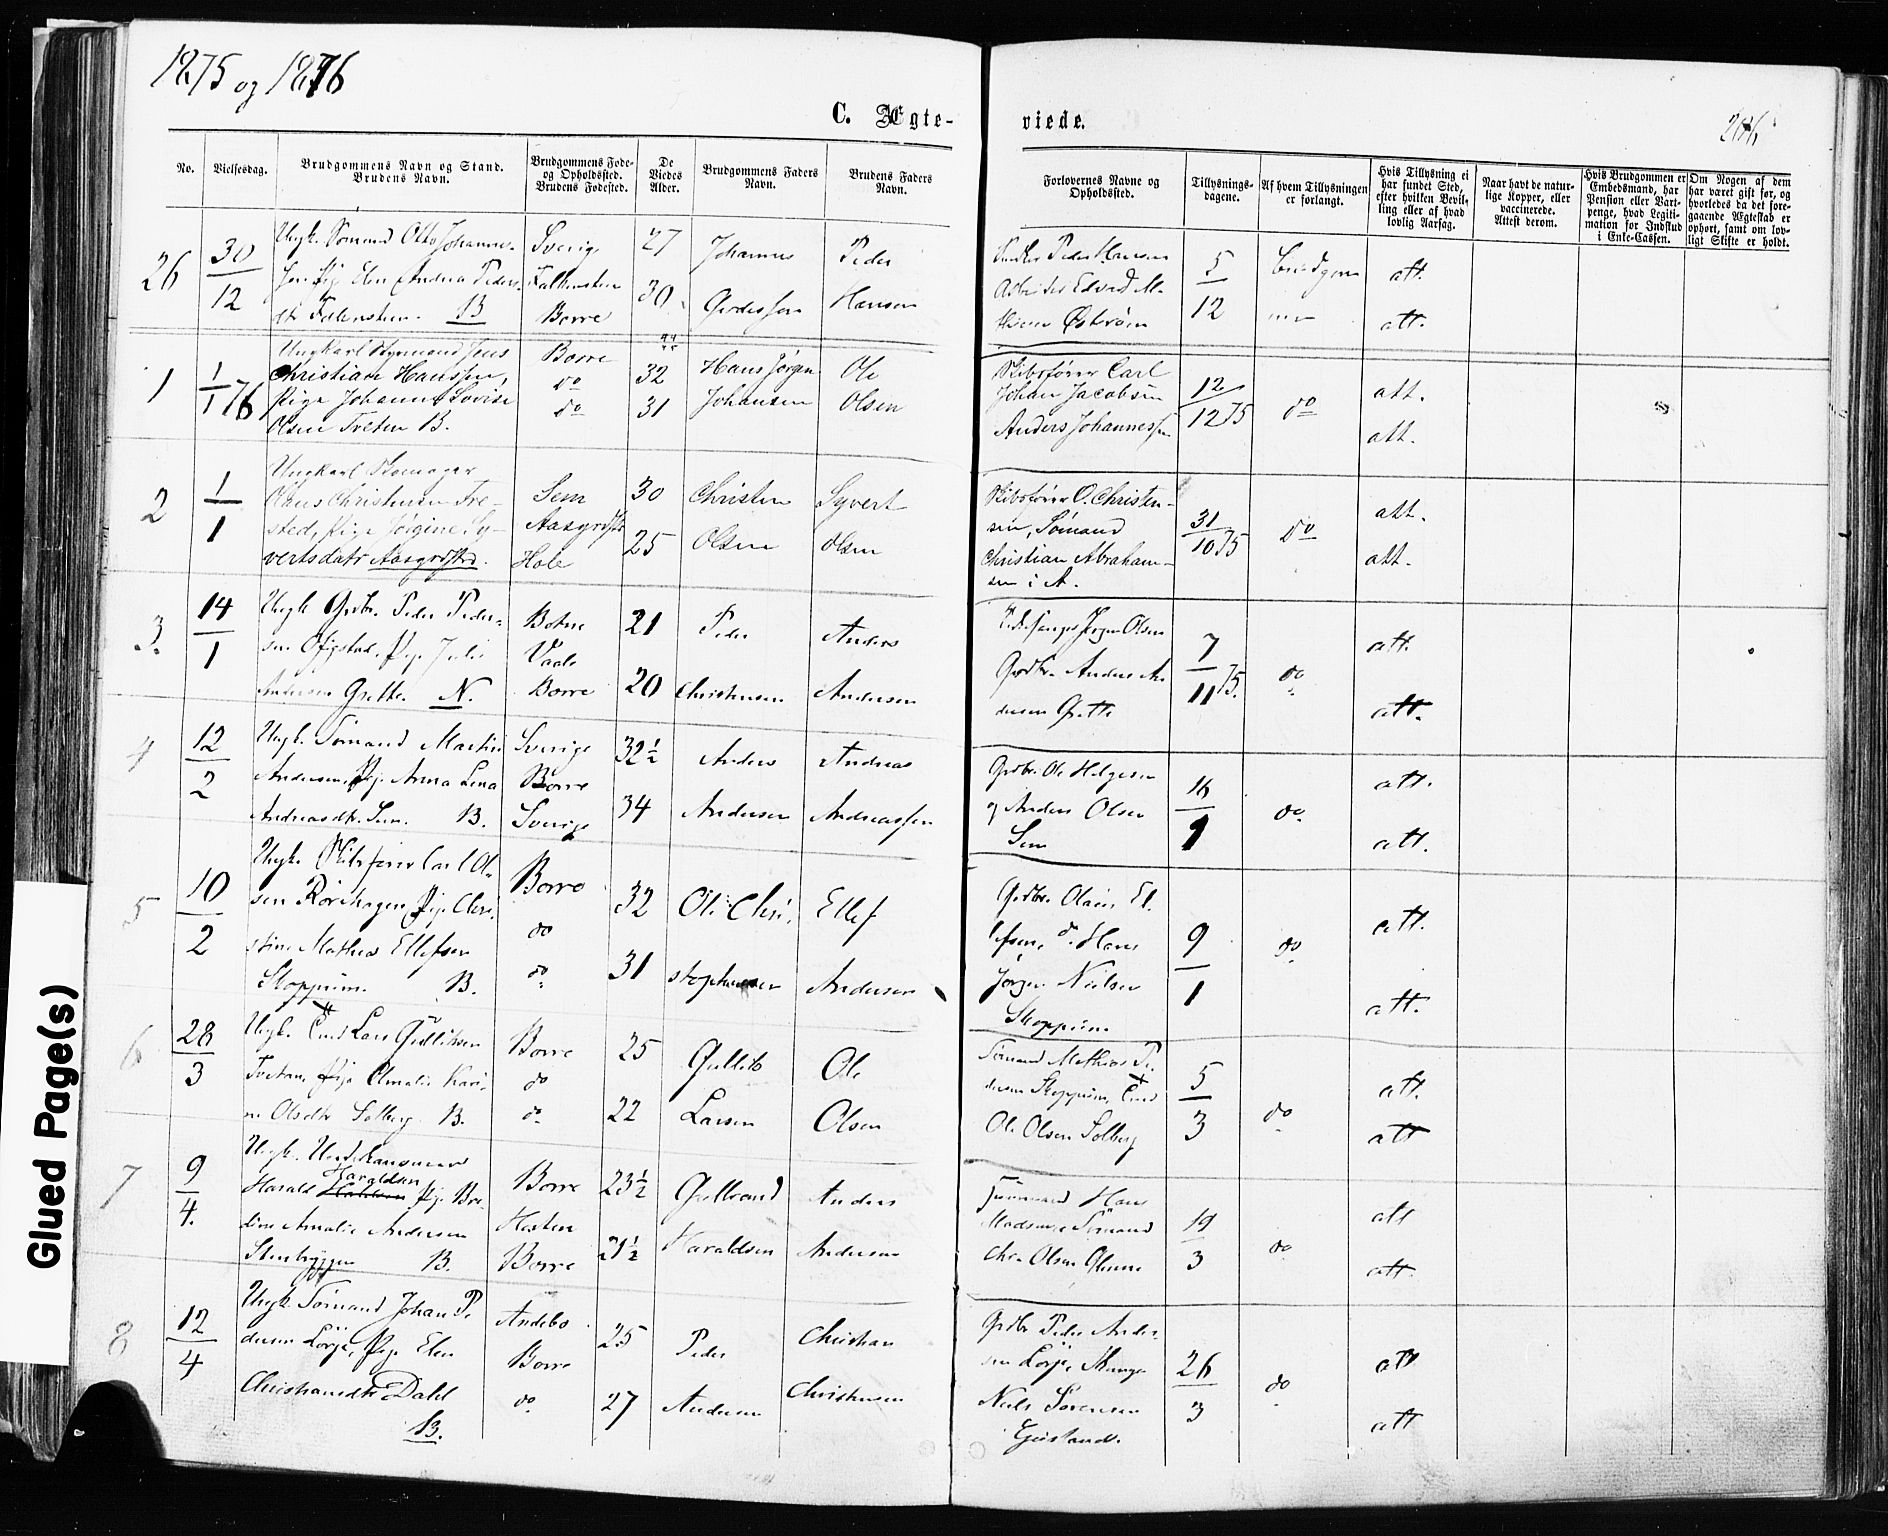 1875 og 1876
C. Ægte-
viede.
206
No.
Vielsesdag.
Brudgommens Navn og Stand.
Brudens Navn.
Brudgommens Føde-
og Opholdssted.
Brudens Fødested.
De
Viedes
Alder.
Brudgommens Faders
Navn.
Brudens Faders
Navn.
Forlovernes Navne og
Opholdssted.
Tillysnings-
dagene.
Af hvem Tillysningen
er forlangt.
Hvis Tillysning ei
har fundet Sted,
efter hvilken Bevil-
ling eller af hvad
lovlig Aarsag.
Naar havt de natur-
lige Kopper, eller
vaccinerede.
Attest derom.
Hvis Brudgommen er
Embedsmand, har
Pension eller Vart-
penge, hvad Legiti-
mation for Indskud
i Enke-Cassen.
Om Nogen af dem
har været gift før, og
hvorledes da det fore-
gaaende Ægteskab er
ophørt, samt om lov-
ligt Skifte er holdt.
26
30
12
Ungk. Sømand Otto Johannes-
sen Pig Elen Andrea Peders-
dtr Falkensten. B
Sverig
Falkensten
Borre
27
30
Johannes
Peder
Hansen
Peder Hansen
5
12
att.
att.
1
1
1 76
Ungkarl Styrmand Jens
Christian Hanssen,
Pige Johanne Lovise
Olsen Treten B.
Borre
do
do
32
31
Hans Jørgen
Johansen
Ole
Olsen
Skibsfører Carl
Johan Jacobsen
Anders Johannessen
12
12 75
do
att.
att.
2
1
1
Ungkarl Skomager
Claus Christensen Fre-
sted, Pige Jørgine Sy-
vertsdatr Aasgrdstrd.
Sem
Aasgrdstr
Hole
30
25
Christen
Olsen
Syvert
Olsen
Skibsfører O. Christen-
sen, Sømand
Christian Abraham-
sen i A.
31
10 75
do
att.
att.
3.
14
1
Ungk Grdbr. Peder Peder-
sen Pige Julie
Andersen Grette. N.
Botne
Vaale
Borre
21
20
Peder
Christensen
Anders
Andersen
Jørgen Olsen
Grdbr. Anders An
dersen Grette
7
11 75.
do
att.
att.
4
12
2
Ungk. Sømand Martin
Andersen, Pige Anna Lena
Andreasdtr. Sem. B.
Sverige
Borre
Sverige
32½
34
Anders
Andersen
Andreas
Andreassen
Grdbr. Ole Helgesen
og Anders Olsen
Sem
16
1
do
att.
att.
5
10
2
Ungk. Skibsfører Carl Ol-
sen Rørehagen, Pige Chri-
stine Mathea Ellefsen
Skoppum. B.
Borre
do
do
32
31
Ole Chri.
stophersen
Ellef
Andersen
Grdbr. Olaus El-
lefsen, do Hans
Jørgen Nielsen
Skoppum
9
1
do
att.
att.
6
28
3
Ungk. Lars Gulliksen
Tvetan, Pige Amalie Kari-
ne Olsdtr Solberg B.
Borre
do
do
25
22
Gullik
Larsen
Ole
Olsen
Sømand Mathias Pe-
dersen Skoppum,
Ole Olsen Solberg
5
3
do
att.
att
7
9
4.
Ungk.
Haraldsen
Harald Pige Ber
dine Amalie Andersen
Stenbyggen B.
Borre
Horten
Borre
23½
21½
Gulbrand
Haraldsen
Anders
Andersen
Hans
Madsen, Sømand
Chr. Olsen Glenne
19
3
do
att
att.
8
12
4
Ungk. Sømand Johan Pe
dersen Lørje, Pige Elen
Christiansdtr Dahl
B.
Andebo
Borre
do
25
27
Peder
Andersen
Christian
Christensen
Grdbr. Peder Ander-
sen Lørje,
Niels Sørensen
26
3
do
att
att
Glued Page(s)